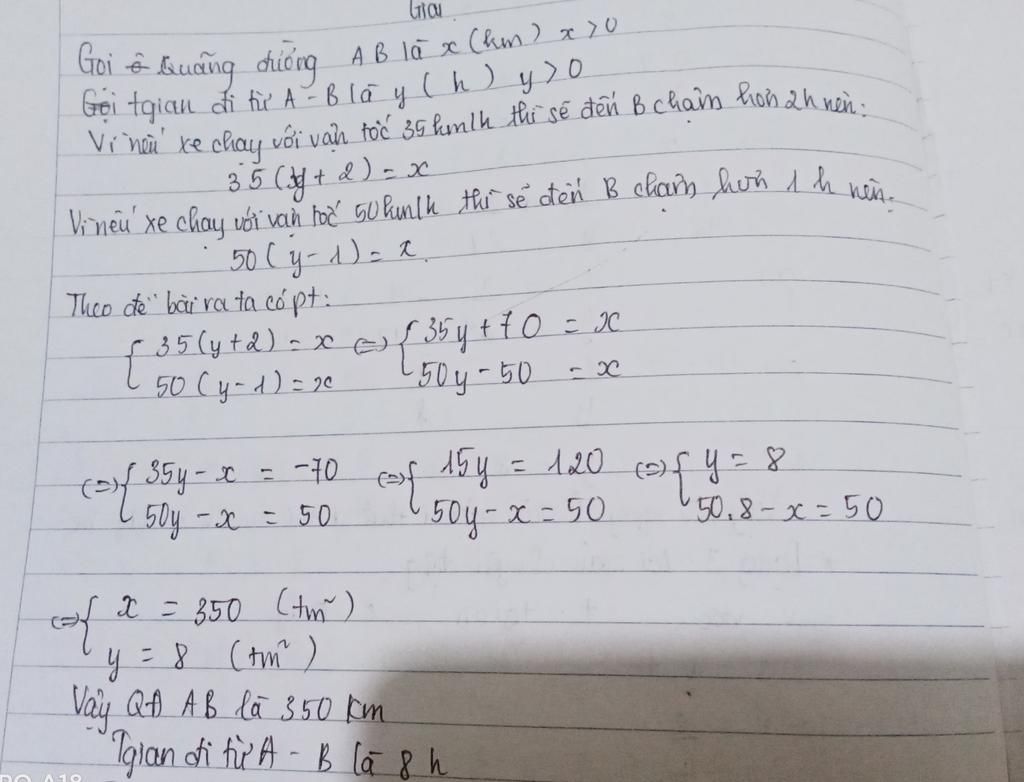 Giải
Gọi quãng đường AB là x (km) x > 0
Gọi tgian đi từ A - B là y (h) y > 0
Vì nếu xe chạy với vận tốc 35km/h thì sẽ đến B chậm hơn 2h nên:
35(y + 2) = x
Vì nếu xe chạy với vận tốc 50km/h thì sẽ đến B chậm hơn 1 h nên:
50(y - 1) = x.
Theo đề bài ra ta có pt:
{ 35(y+2) = x <=> { 35y + 70 = x
50(y-1) = x 50y - 50 = x
<=> { 35y - x = -70 <=> { 15y = 120 <=> { y = 8
50y - x = 50 50y - x = 50 50.8 - x = 50
<=> { x = 350 (tm~)
y = 8 (tm~)
Vậy QĐ AB là 350 km
Tgian đi từ A - B là 8 h